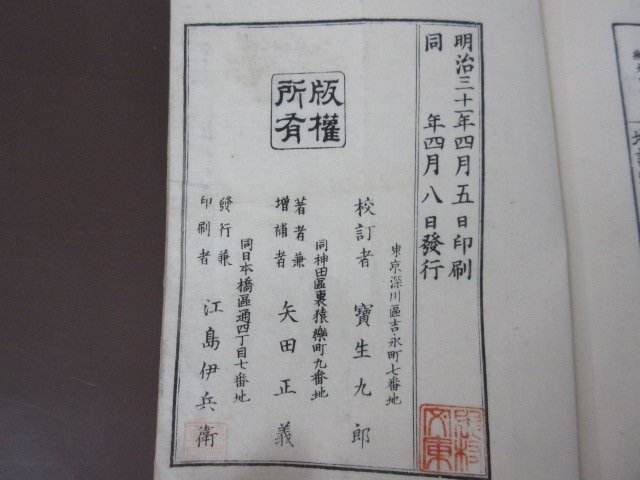 明治三十一年四月五日印刷
同　年四月八日發行
版權
所有
東京深川區吉永町七番地
校訂者　寶生九郎
同神田區裏猿樂町九番地
著者兼
增補者　矢田正義
同日本橋區通四丁目七番地
發行兼
印刷者　江島伊兵衛